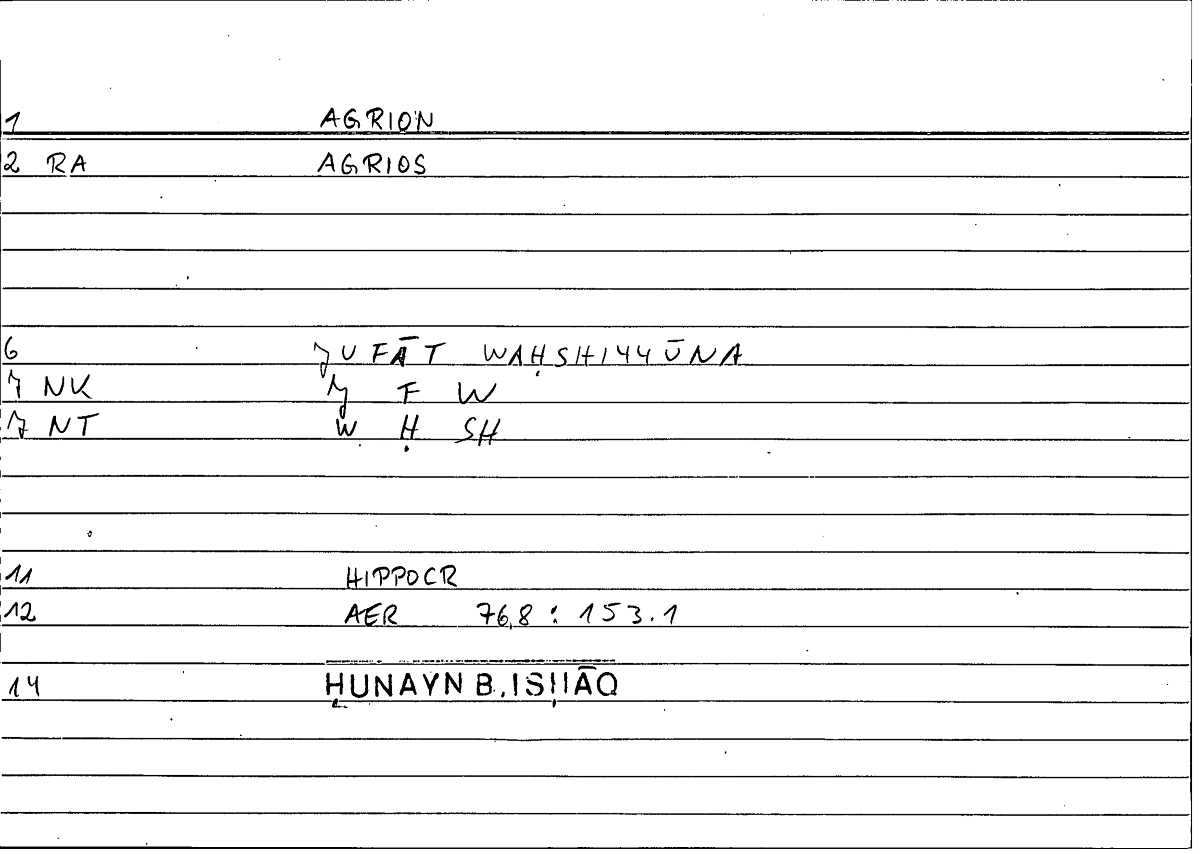 1 AGRION
2 RA AGRIOS
6 JUFĀT WAḤSHIYYŪNA
7 NK J F W
7 NT W Ḥ SH
11 HIPPOCR
12 AER 76,8 : 153.1
14 ḤUNAYN B. ISḤĀQ